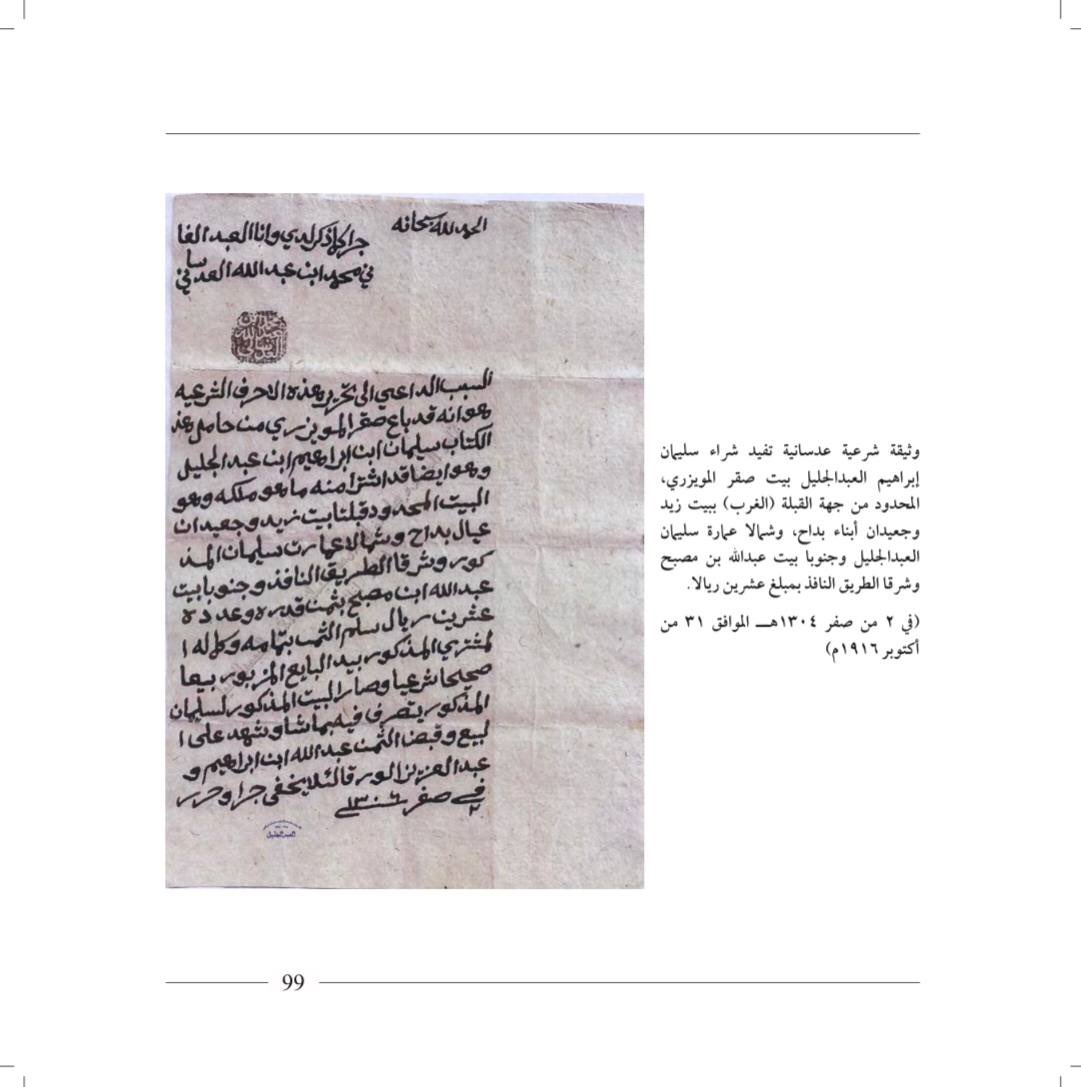 الحمد لله سبحانه
جرا كما ذكر لدي وانا العبد الفا
ني محمد ابن عبدالله العدساني
السبب الداعي الى تحرير هذه الاحرف الشرعيه
هو انه قد باع صقر المويزري من حامل هذ
الكتاب سليمان ابن ابراهيم ابن عبد الجليل
وهو ايضا قد اشترا منه ما هو ملكه وهو
البيت المحدود قبلتا بيت زيد وجعيدان
عيال بداح وشمالا عمارت سليمان المذ
كور وشرقا الطريق النافذ وجنوبا بيت
عبدالله ابن مصبح بثمن قدره وعدده
عشرين ريال سلم الثمن بتمامه وكماله ا
لمشتري المذكور بيد البايع المزبور بيعا
صحيحا شرعيا وصار البيت المذكور لسليمان
المذكور يتصرف فيه بما شا وشهد على ا
لبيع وقبض الثمن عبدالله ابن ابراهيم و
عبد العزيز الورقا لئلا يخفى جرا وحرر
في ٢ صفر سنة ١٣٠٤
العبدالجليل
وثيقة شرعية عدسانية تفيد شراء سليمان
إبراهيم العبدالجليل بيت صقر المويزري،
المحدود من جهة القبلة (الغرب) ببيت زيد
وجعيدان أبناء بداح، وشمالا عمارة سليمان
العبدالجليل وجنوبا بيت عبدالله بن مصبح
وشرقا الطريق النافذ بمبلغ عشرين ريالا.
(في ٢ من صفر ١٣٠٤هـ الموافق ٣١ من
أكتوبر ١٩١٦م)
99